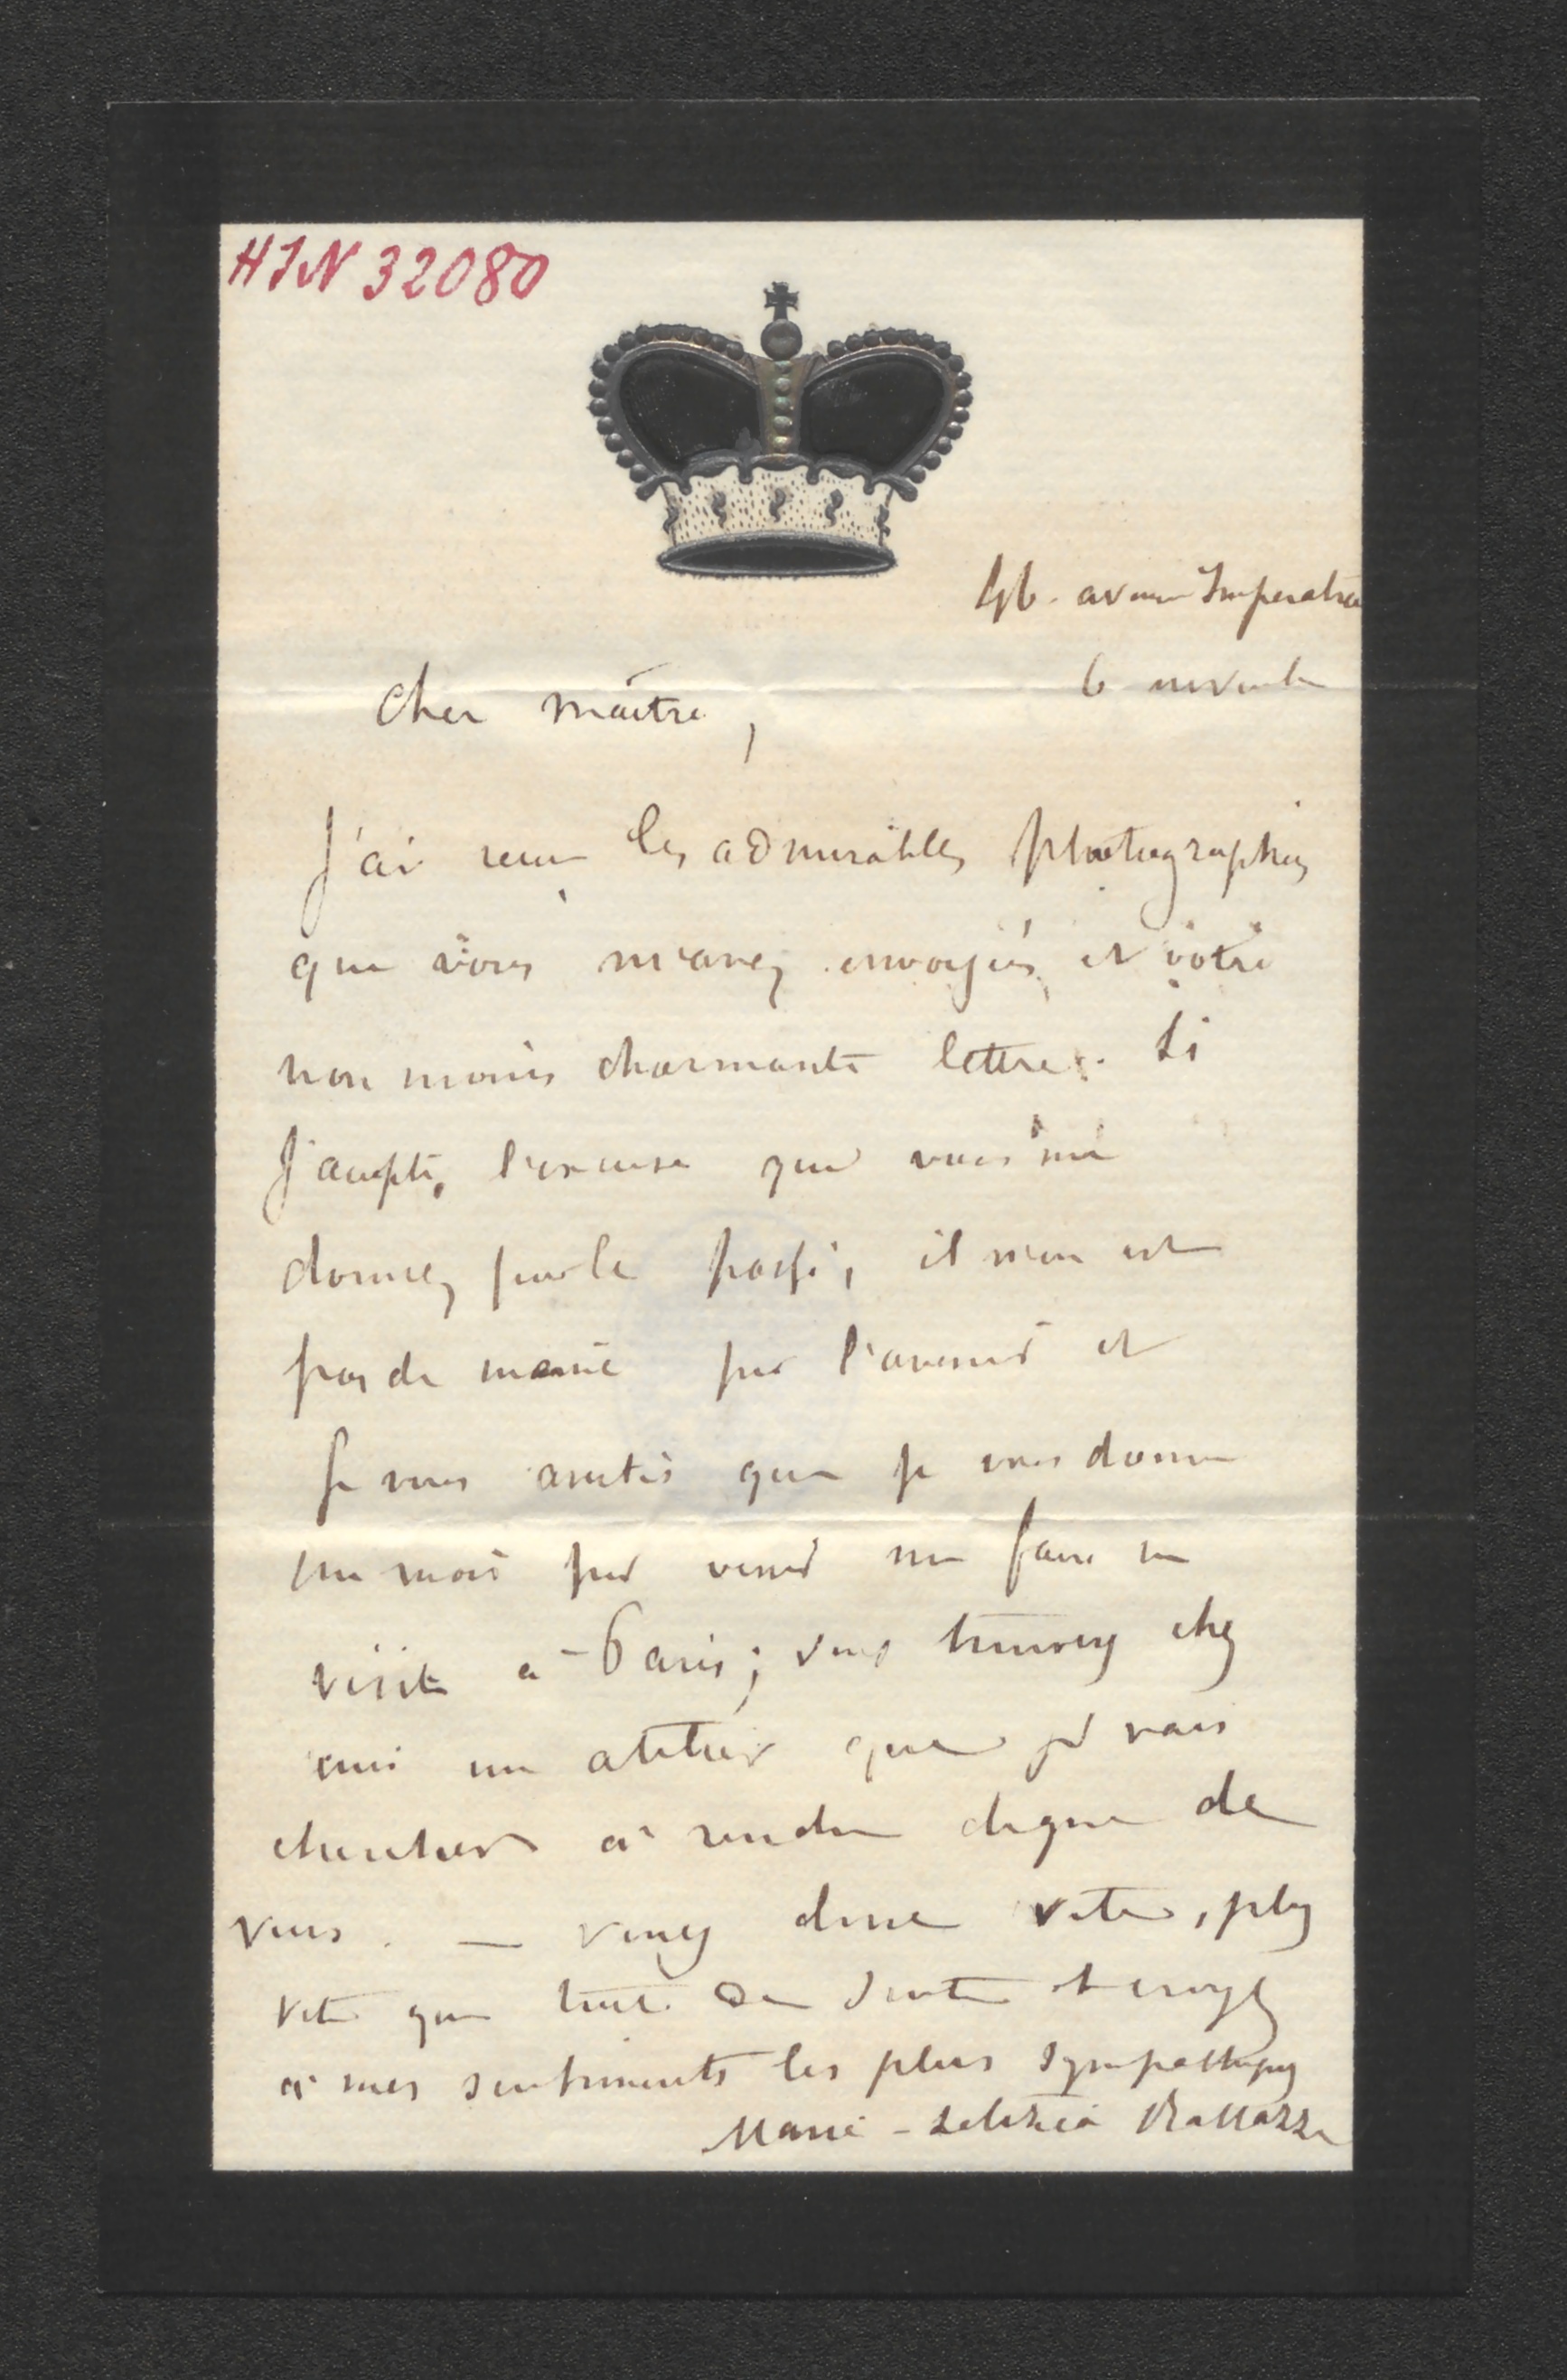 HIN 32080
46. avenue Imperatrice
6 novembre
Cher maître,
J'ai reçu les admirables photographies
que vous m'avez envoyées et votre
non moins charmante lettre. Si
J'accepte, l'excuse que vous me
donnez pour le passé, il n'en est
pas de même pour l'avenir et
Je vous avertis que je vous donne
un mois pour venir me faire une
visite à Paris; vous trouverez chez
moi un atelier que je vais
chercher à rendre digne de
vous. — venez donc vite, plus
vite que tout de suite et croyez
à mes sentiments les plus sympathiques
Marie-Letizia Rattazzi